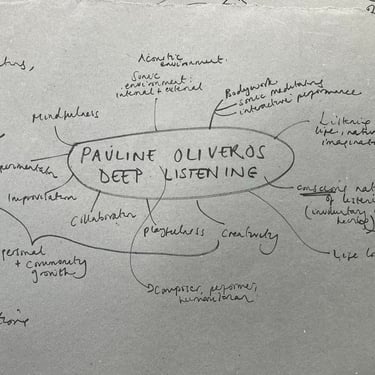 Acoustic
environment.
Sonic
environment:
internal + external
Bodywork
sonic meditations
interactive performance
Mindfulness
Listening
life, nature
imagination
PAULINE OLIVEROS
DEEP LISTENING
Improvisation
conscious
of listening
(involuntary
Collaboration
Playfulness
Creativity
personal
+ community
growth
Life
Composer, performer,
humanitarian